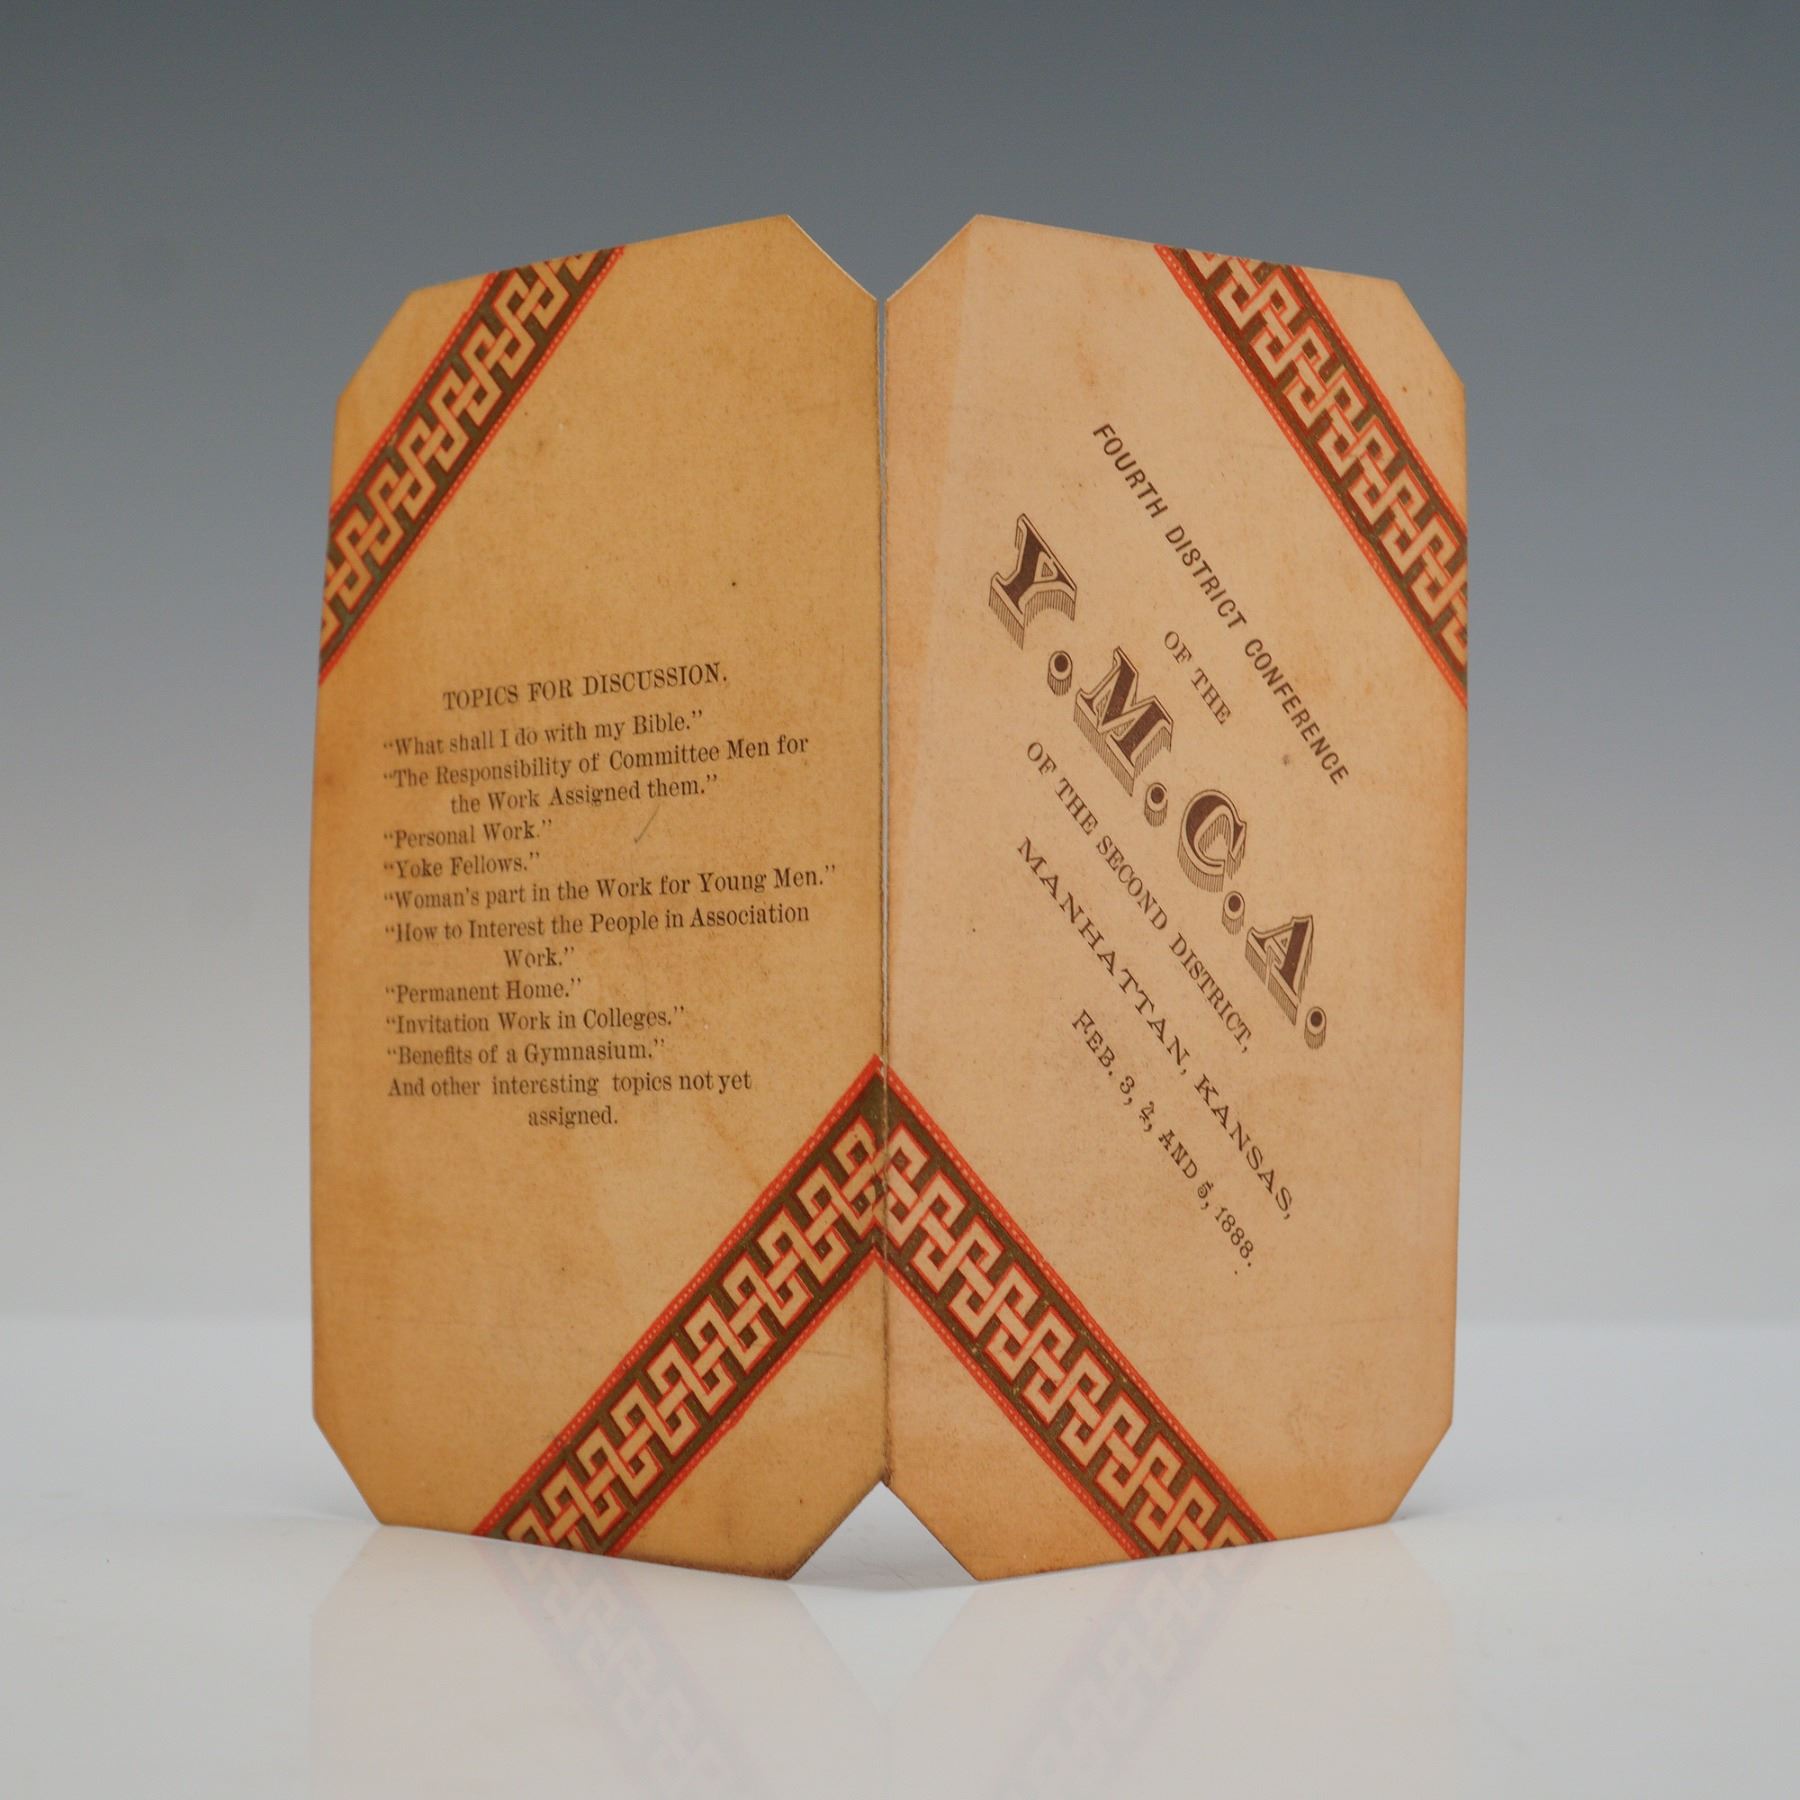 TOPICS FOR DISCUSSION.
“What shall I do with my Bible.”
“The Responsibility of Committee Men for
the Work Assigned them.”
“Personal Work.”
“Yoke Fellows.”
“Woman’s part in the Work for Young Men.”
“How to Interest the People in Association
Work.”
“Permanent Home.”
“Invitation Work in Colleges.”
“Benefits of a Gymnasium.”
And other interesting topics not yet
assigned.
FOURTH DISTRICT CONFERENCE
OF THE
Y.M.C.A.
OF THE SECOND DISTRICT,
MANHATTAN, KANSAS,
FEB. 3, 4, AND 5, 1888.